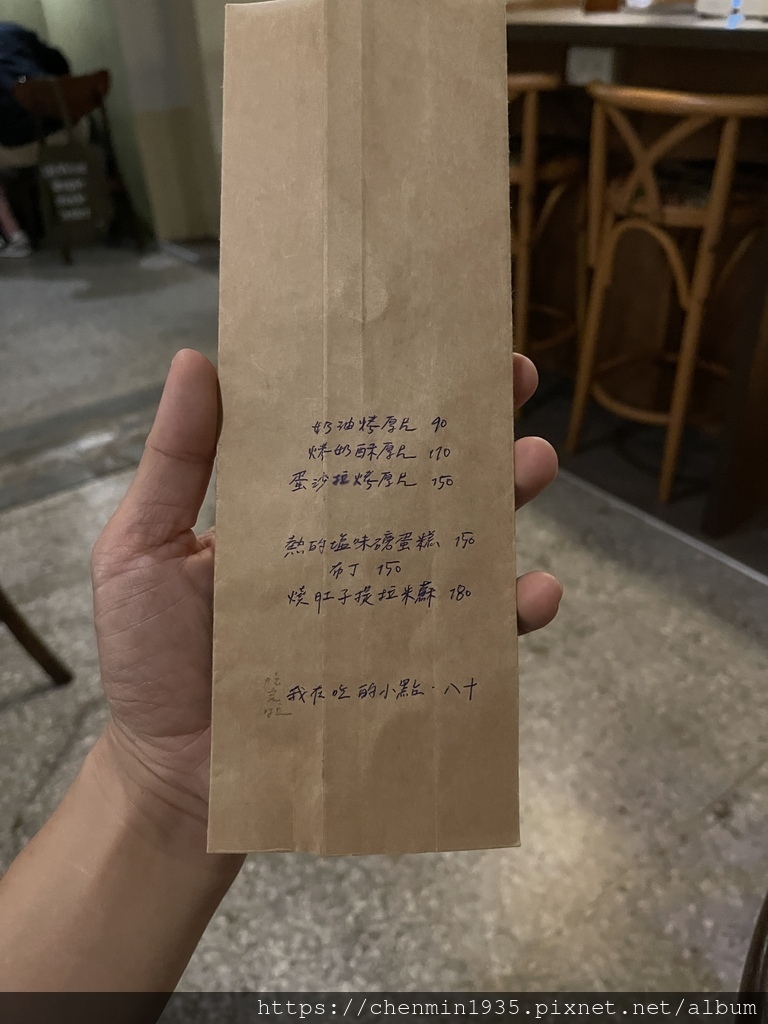 奶油烤厚片 90
烤奶酥厚片 110
蛋沙拉烤厚片 150
熱的塩味磅蛋糕 150
布丁 150
燒肚子提拉米蘇 180
我在吃的小點·八十
https://chenmin1935.pixnet.net/album